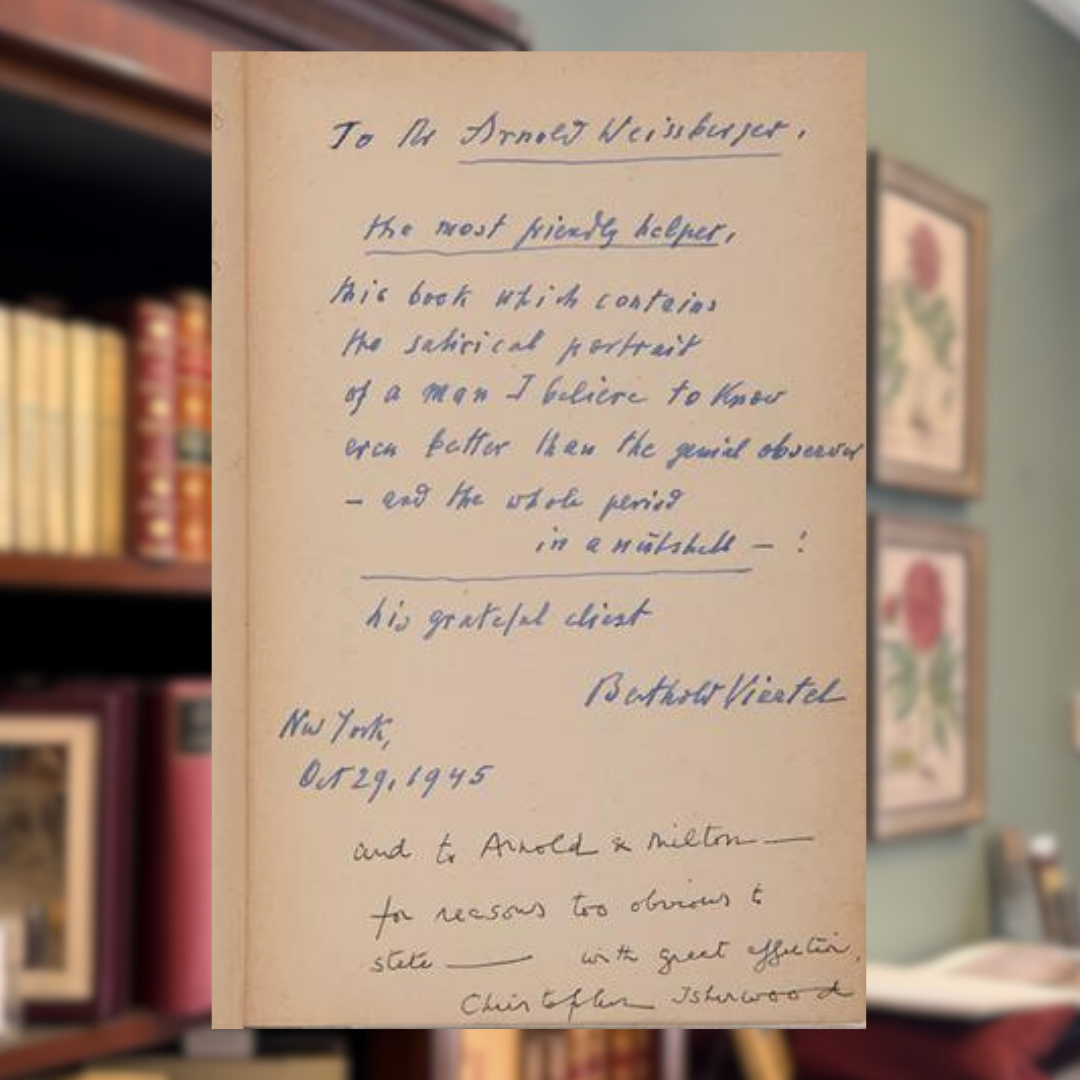 To Mr Arnold Weissberger,
the most friendly helper,
this book which contains
the satirical portrait
of a man I believe to know
even better than the genial observer
– and the whole period
in a nutshell – !
his grateful client
Berthold Viertel
New York,
Oct 29, 1945
and to Arnold & Milton —
for reasons too obvious to
state — with great affection,
Christopher Isherwood